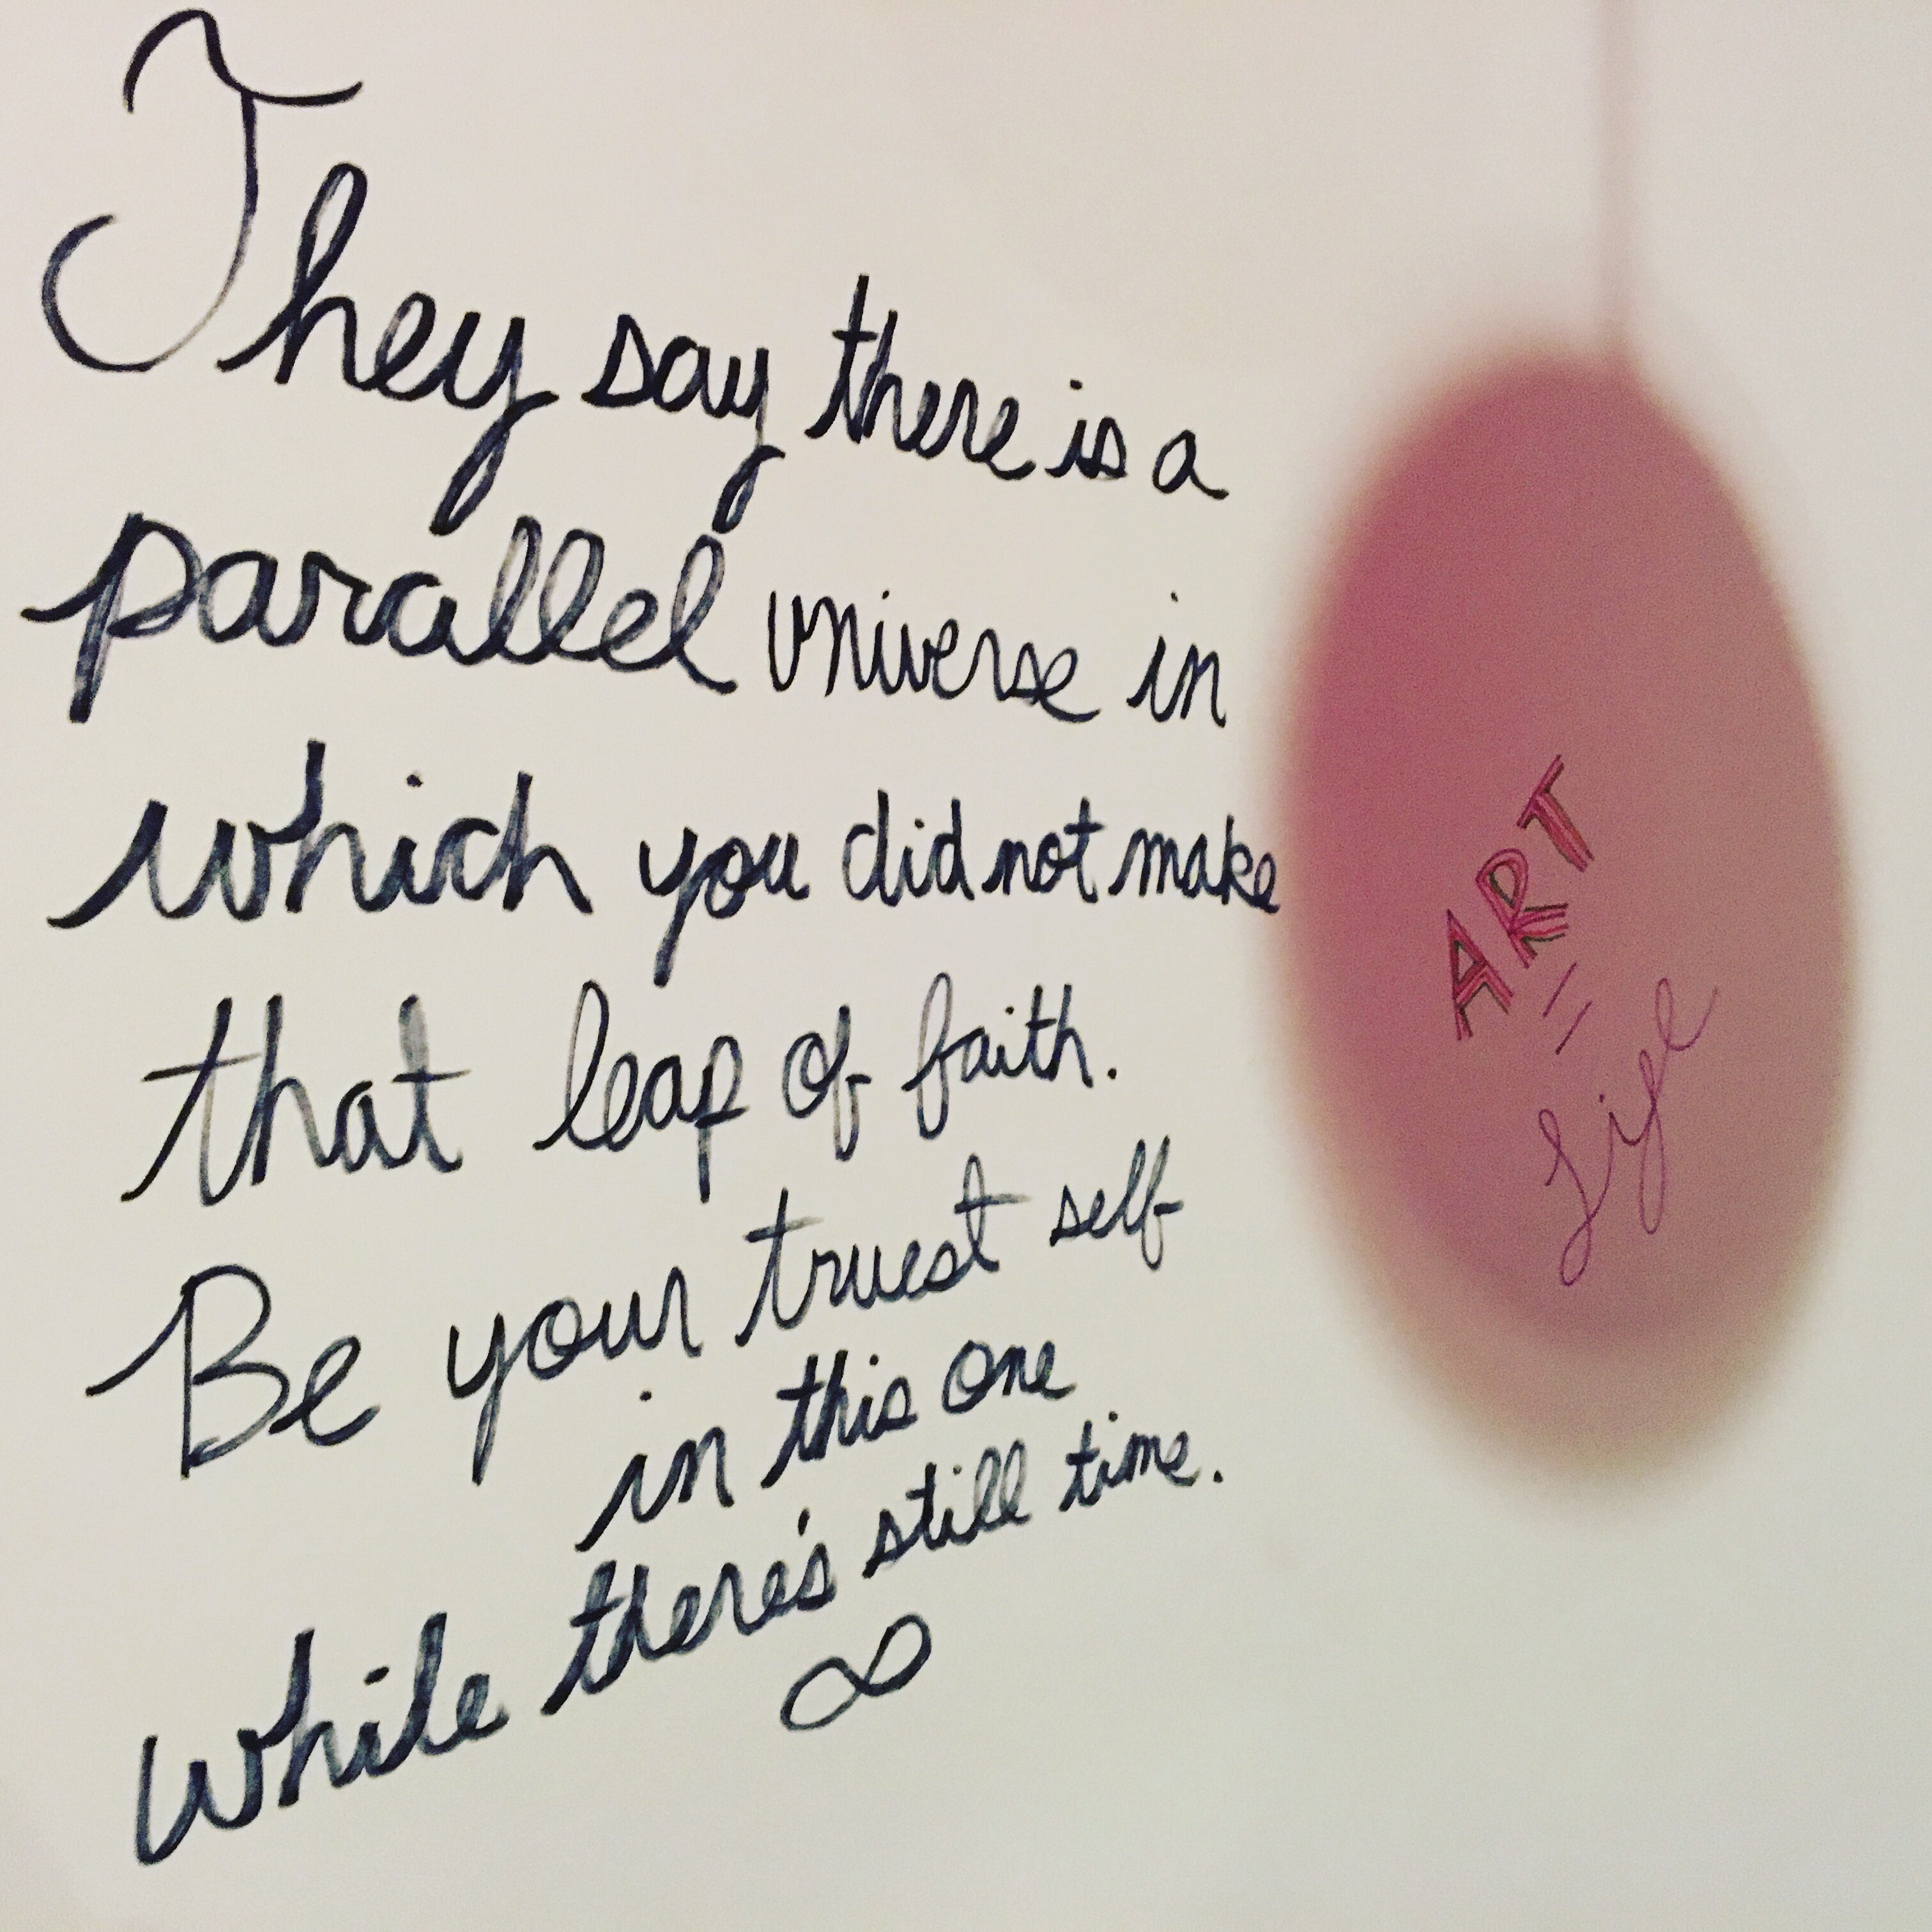 They say there is a
parallel universe in
which you did not make
that leap of faith.
Be your truest self
in this one
while there's still time.
∞
ART
=
Life